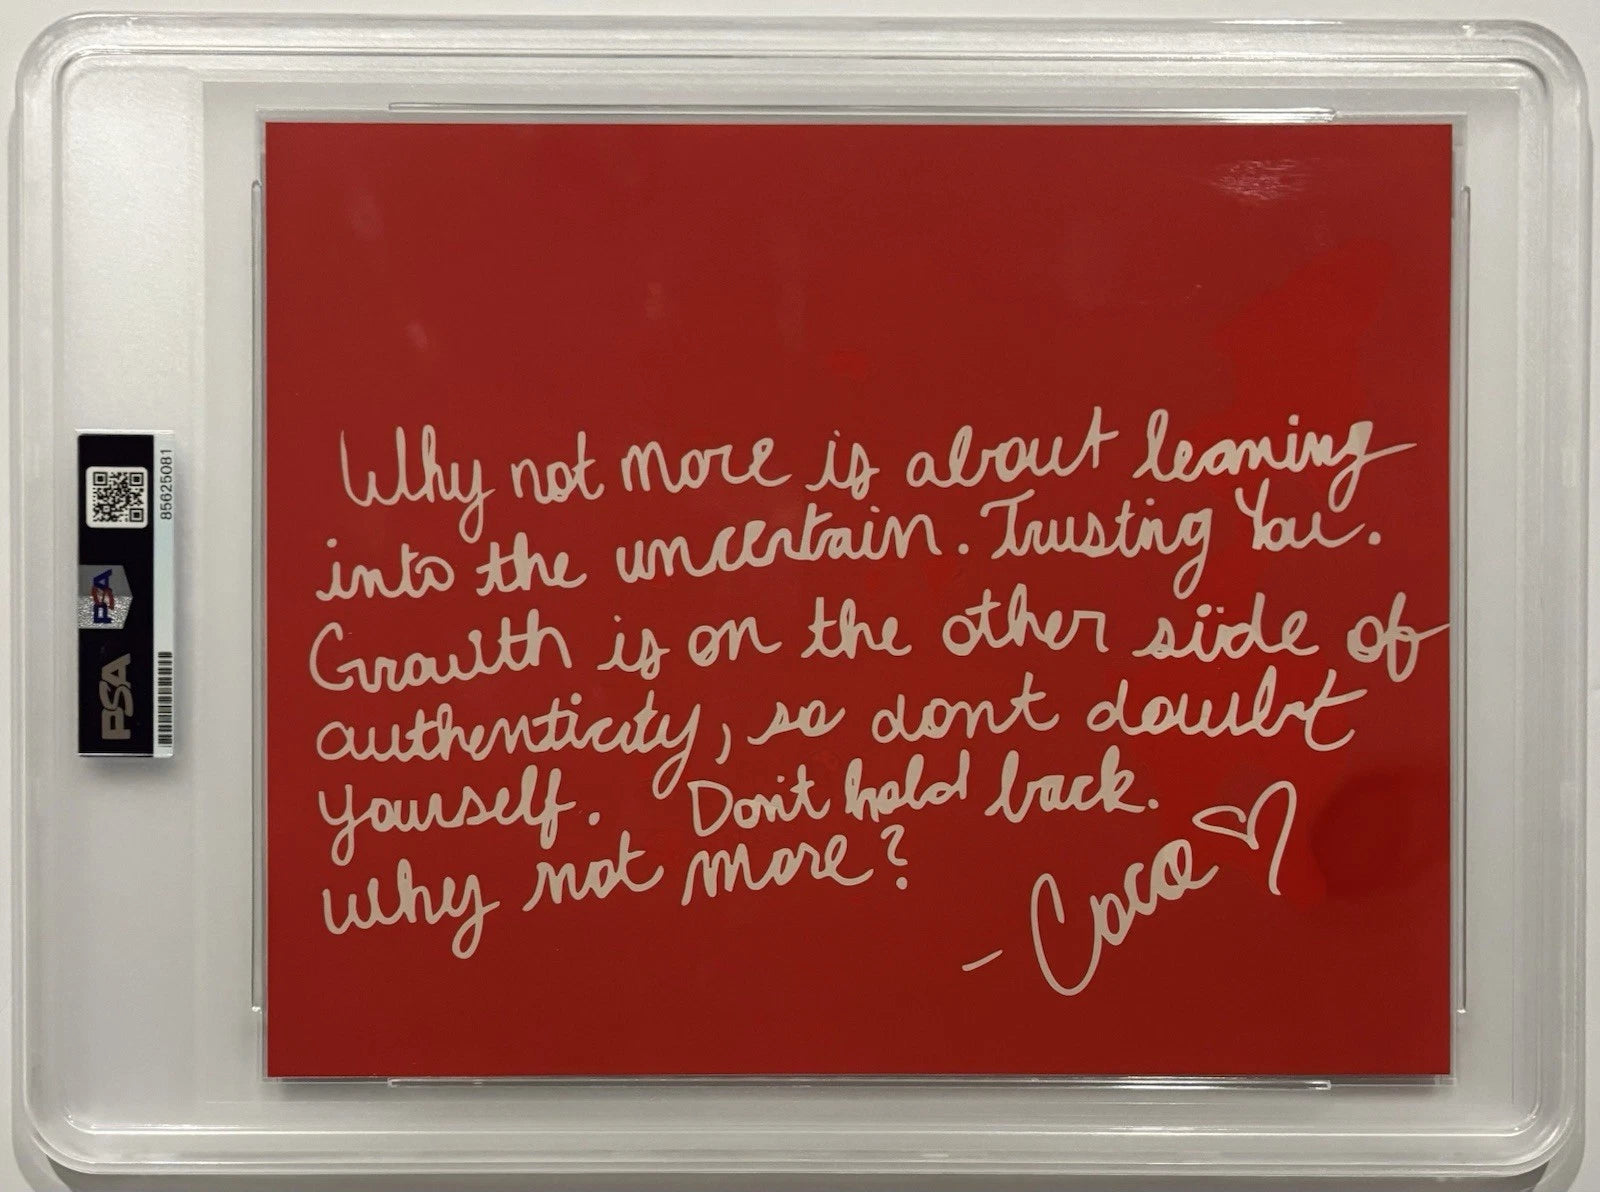 Why not more is about leaning
into the uncertain. Trusting You.
Growth is on the other side of
authenticity, so dont doubt
yourself. Don't hold back.
Why not more?
- Coco
85625081
PSA
PSA